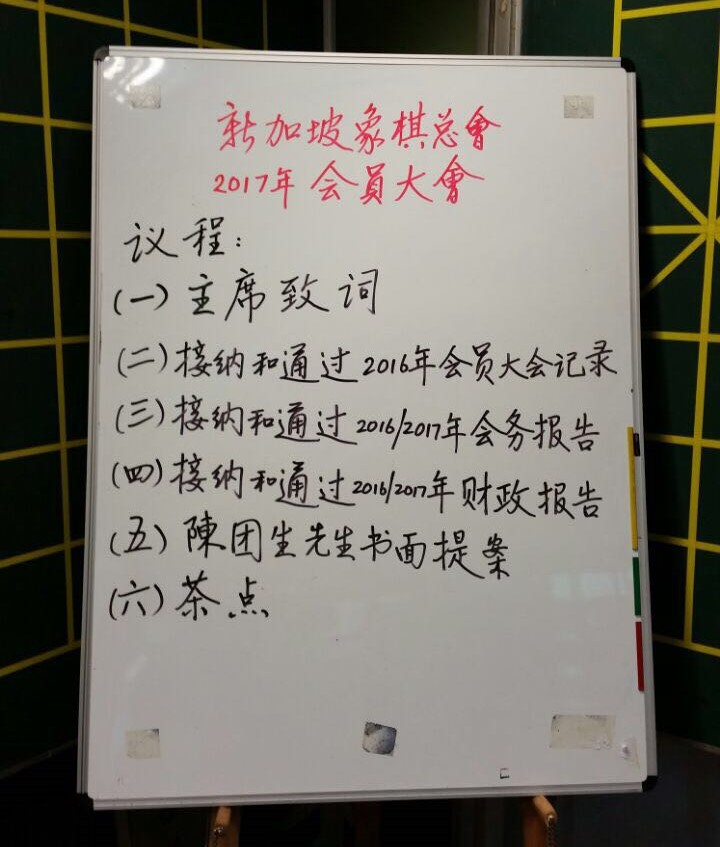 新加坡象棋总會
2017年 会員大會
议程：
(一) 主席致词
(二) 接纳和通过 2016年会员大会记录
(三) 接纳和通过 2016/2017年会务报告
(四) 接纳和通过 2016/2017年财政报告
(五) 陳团生先生书面提案
(六) 茶点